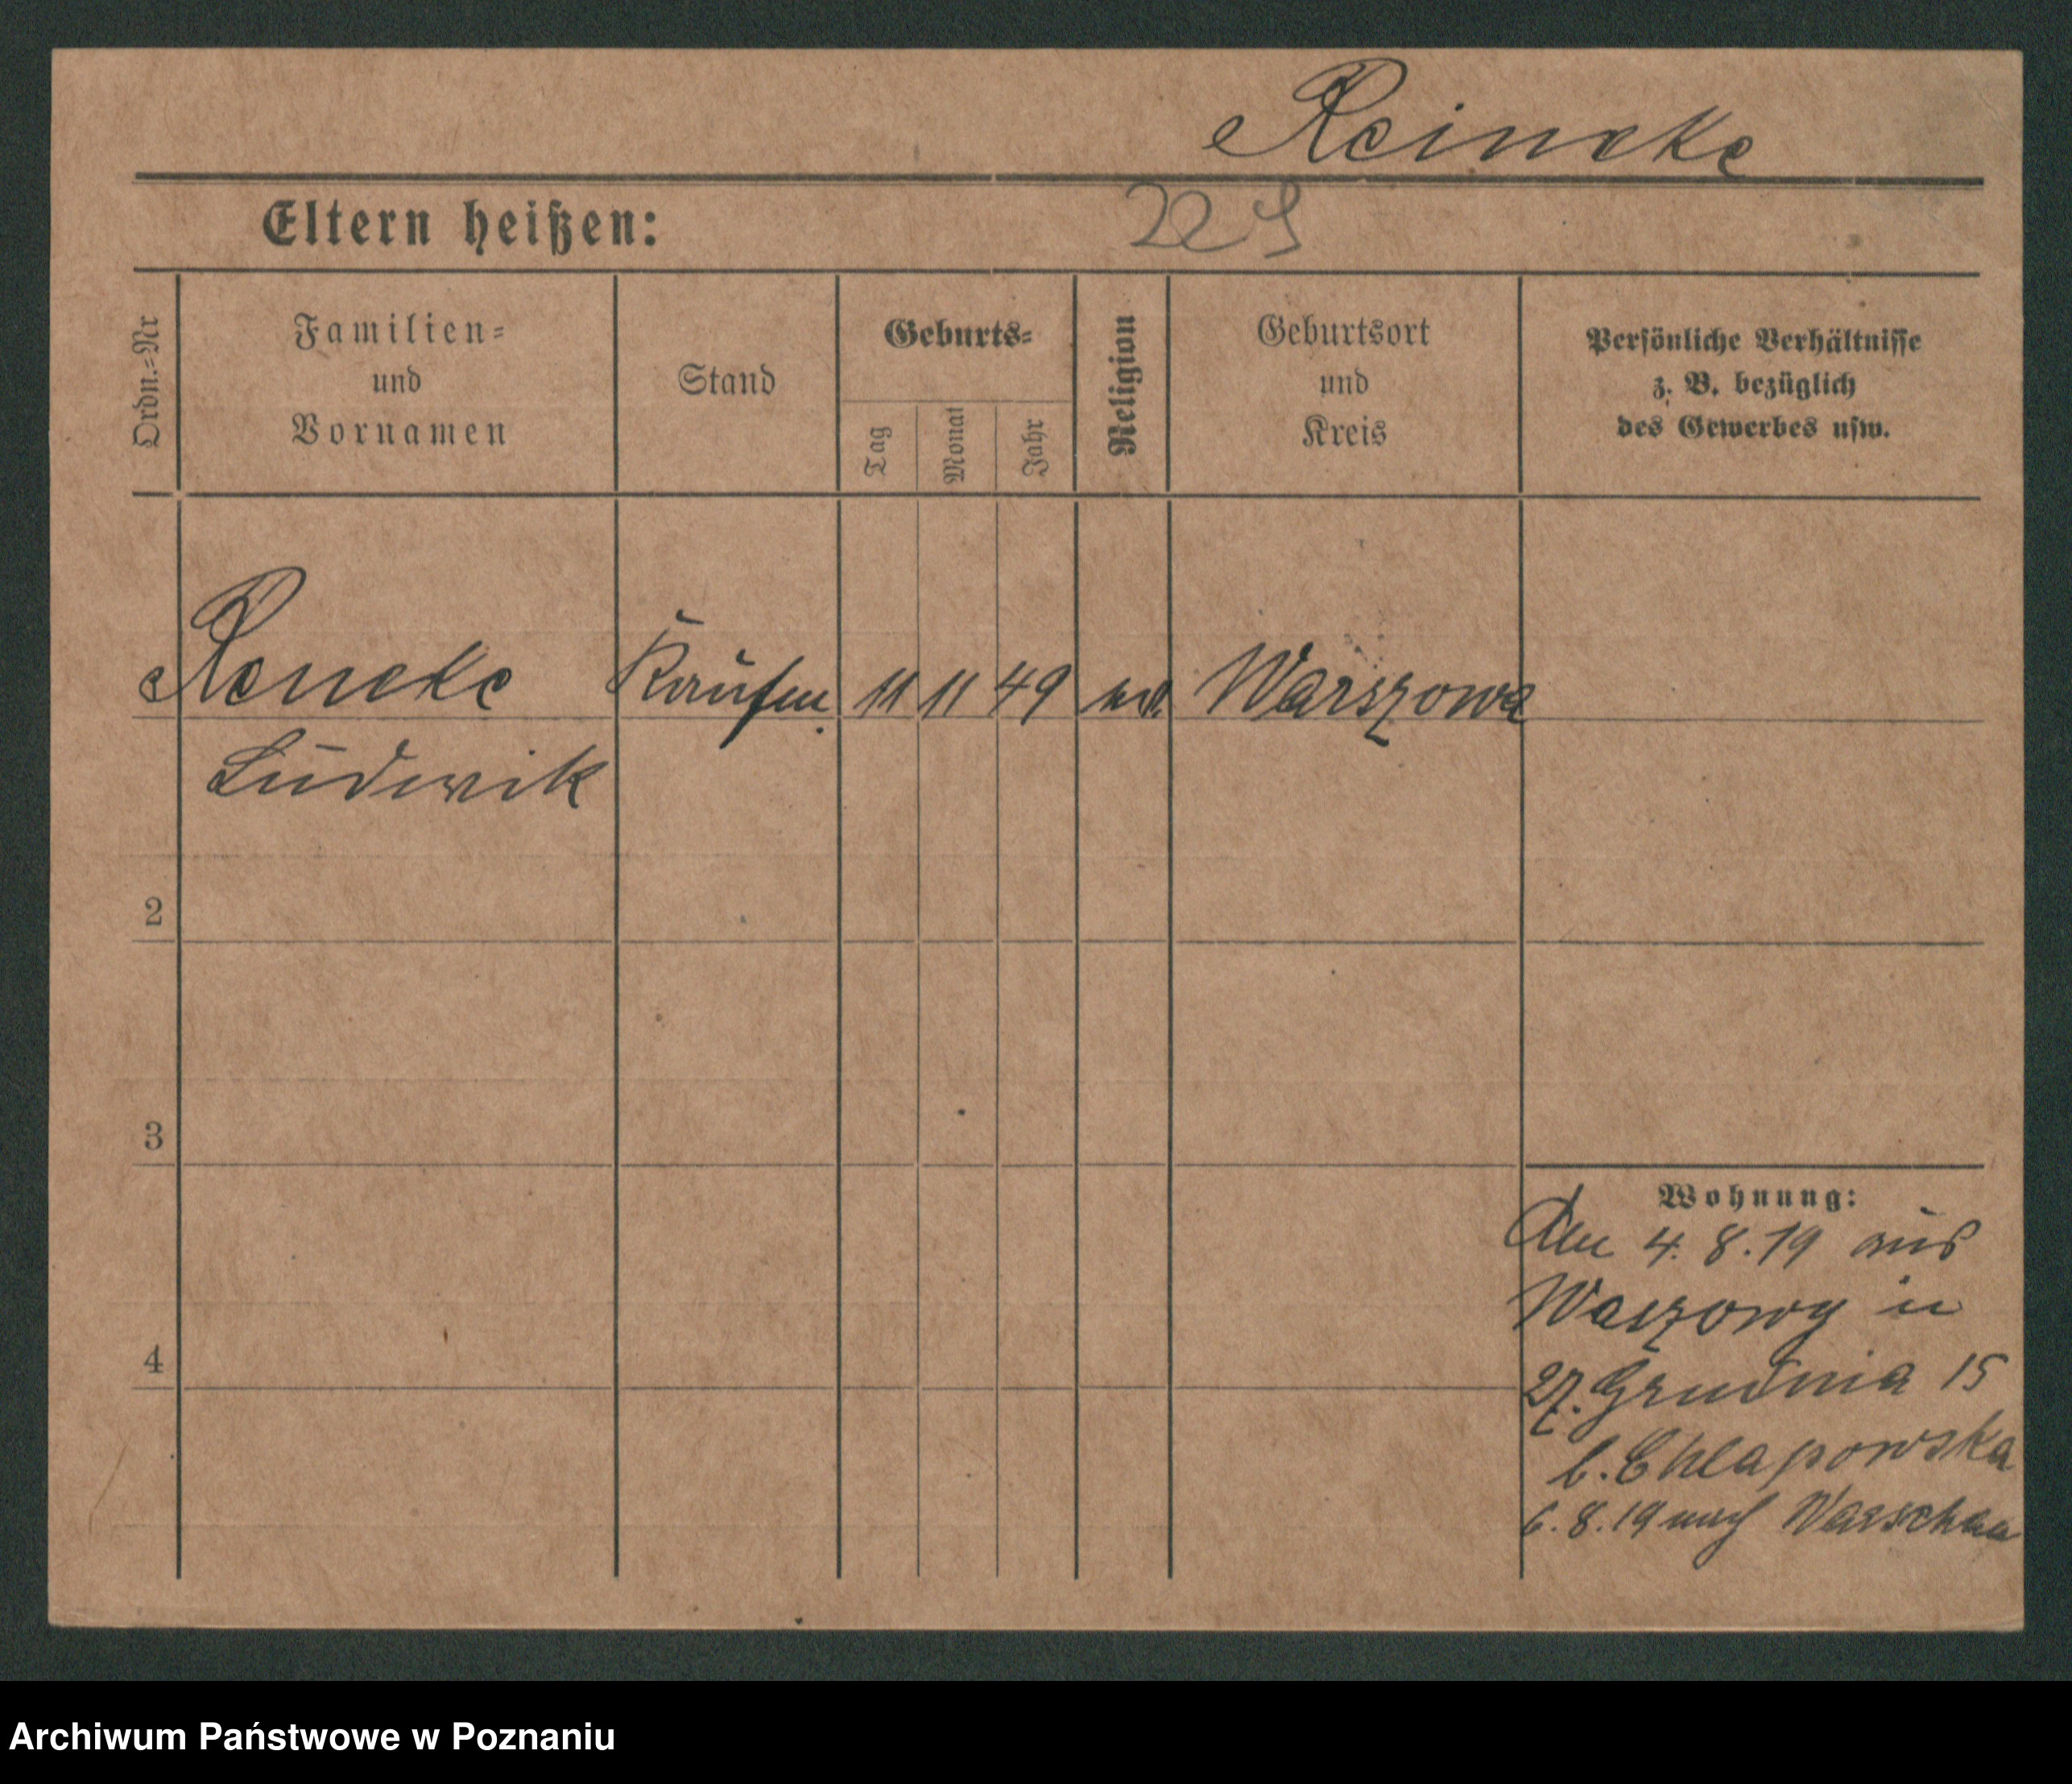 Reineke
Eltern heißen:
Ordn.=Nr
Familien=
und
Vornamen
Stand
Geburts=
Tag
Monat
Jahr
Religion
Geburtsort
und
Kreis
Persönliche Verhältnisse
z. B. bezüglich
des Gewerbes usw.
Reneke Kaufm. 11 11 49 Warszowa
Ludwik
2
3
4
Wohnung:
4.8.19 aus
Waszowy in
27. Grudnia 15
b. Chlapowska
6.8.19 nach Warschau
Archiwum Państwowe w Poznaniu